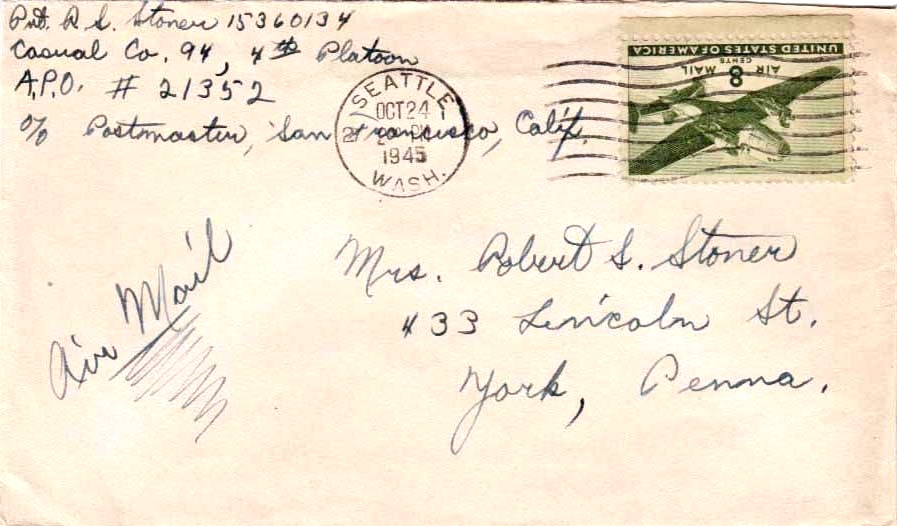 Pvt. R. S. Stoner 15360134
Casual Co. 94, 4th Platoon
A.P.O. # 21352
c/o Postmaster, San Francisco, Calif.
SEATTLE
OCT 24
1945
WASH.
UNITED STATES OF AMERICA
CENTS
8
AIR MAIL
Air Mail
Mrs. Robert S. Stoner
433 Lincoln St.
York, Penna.